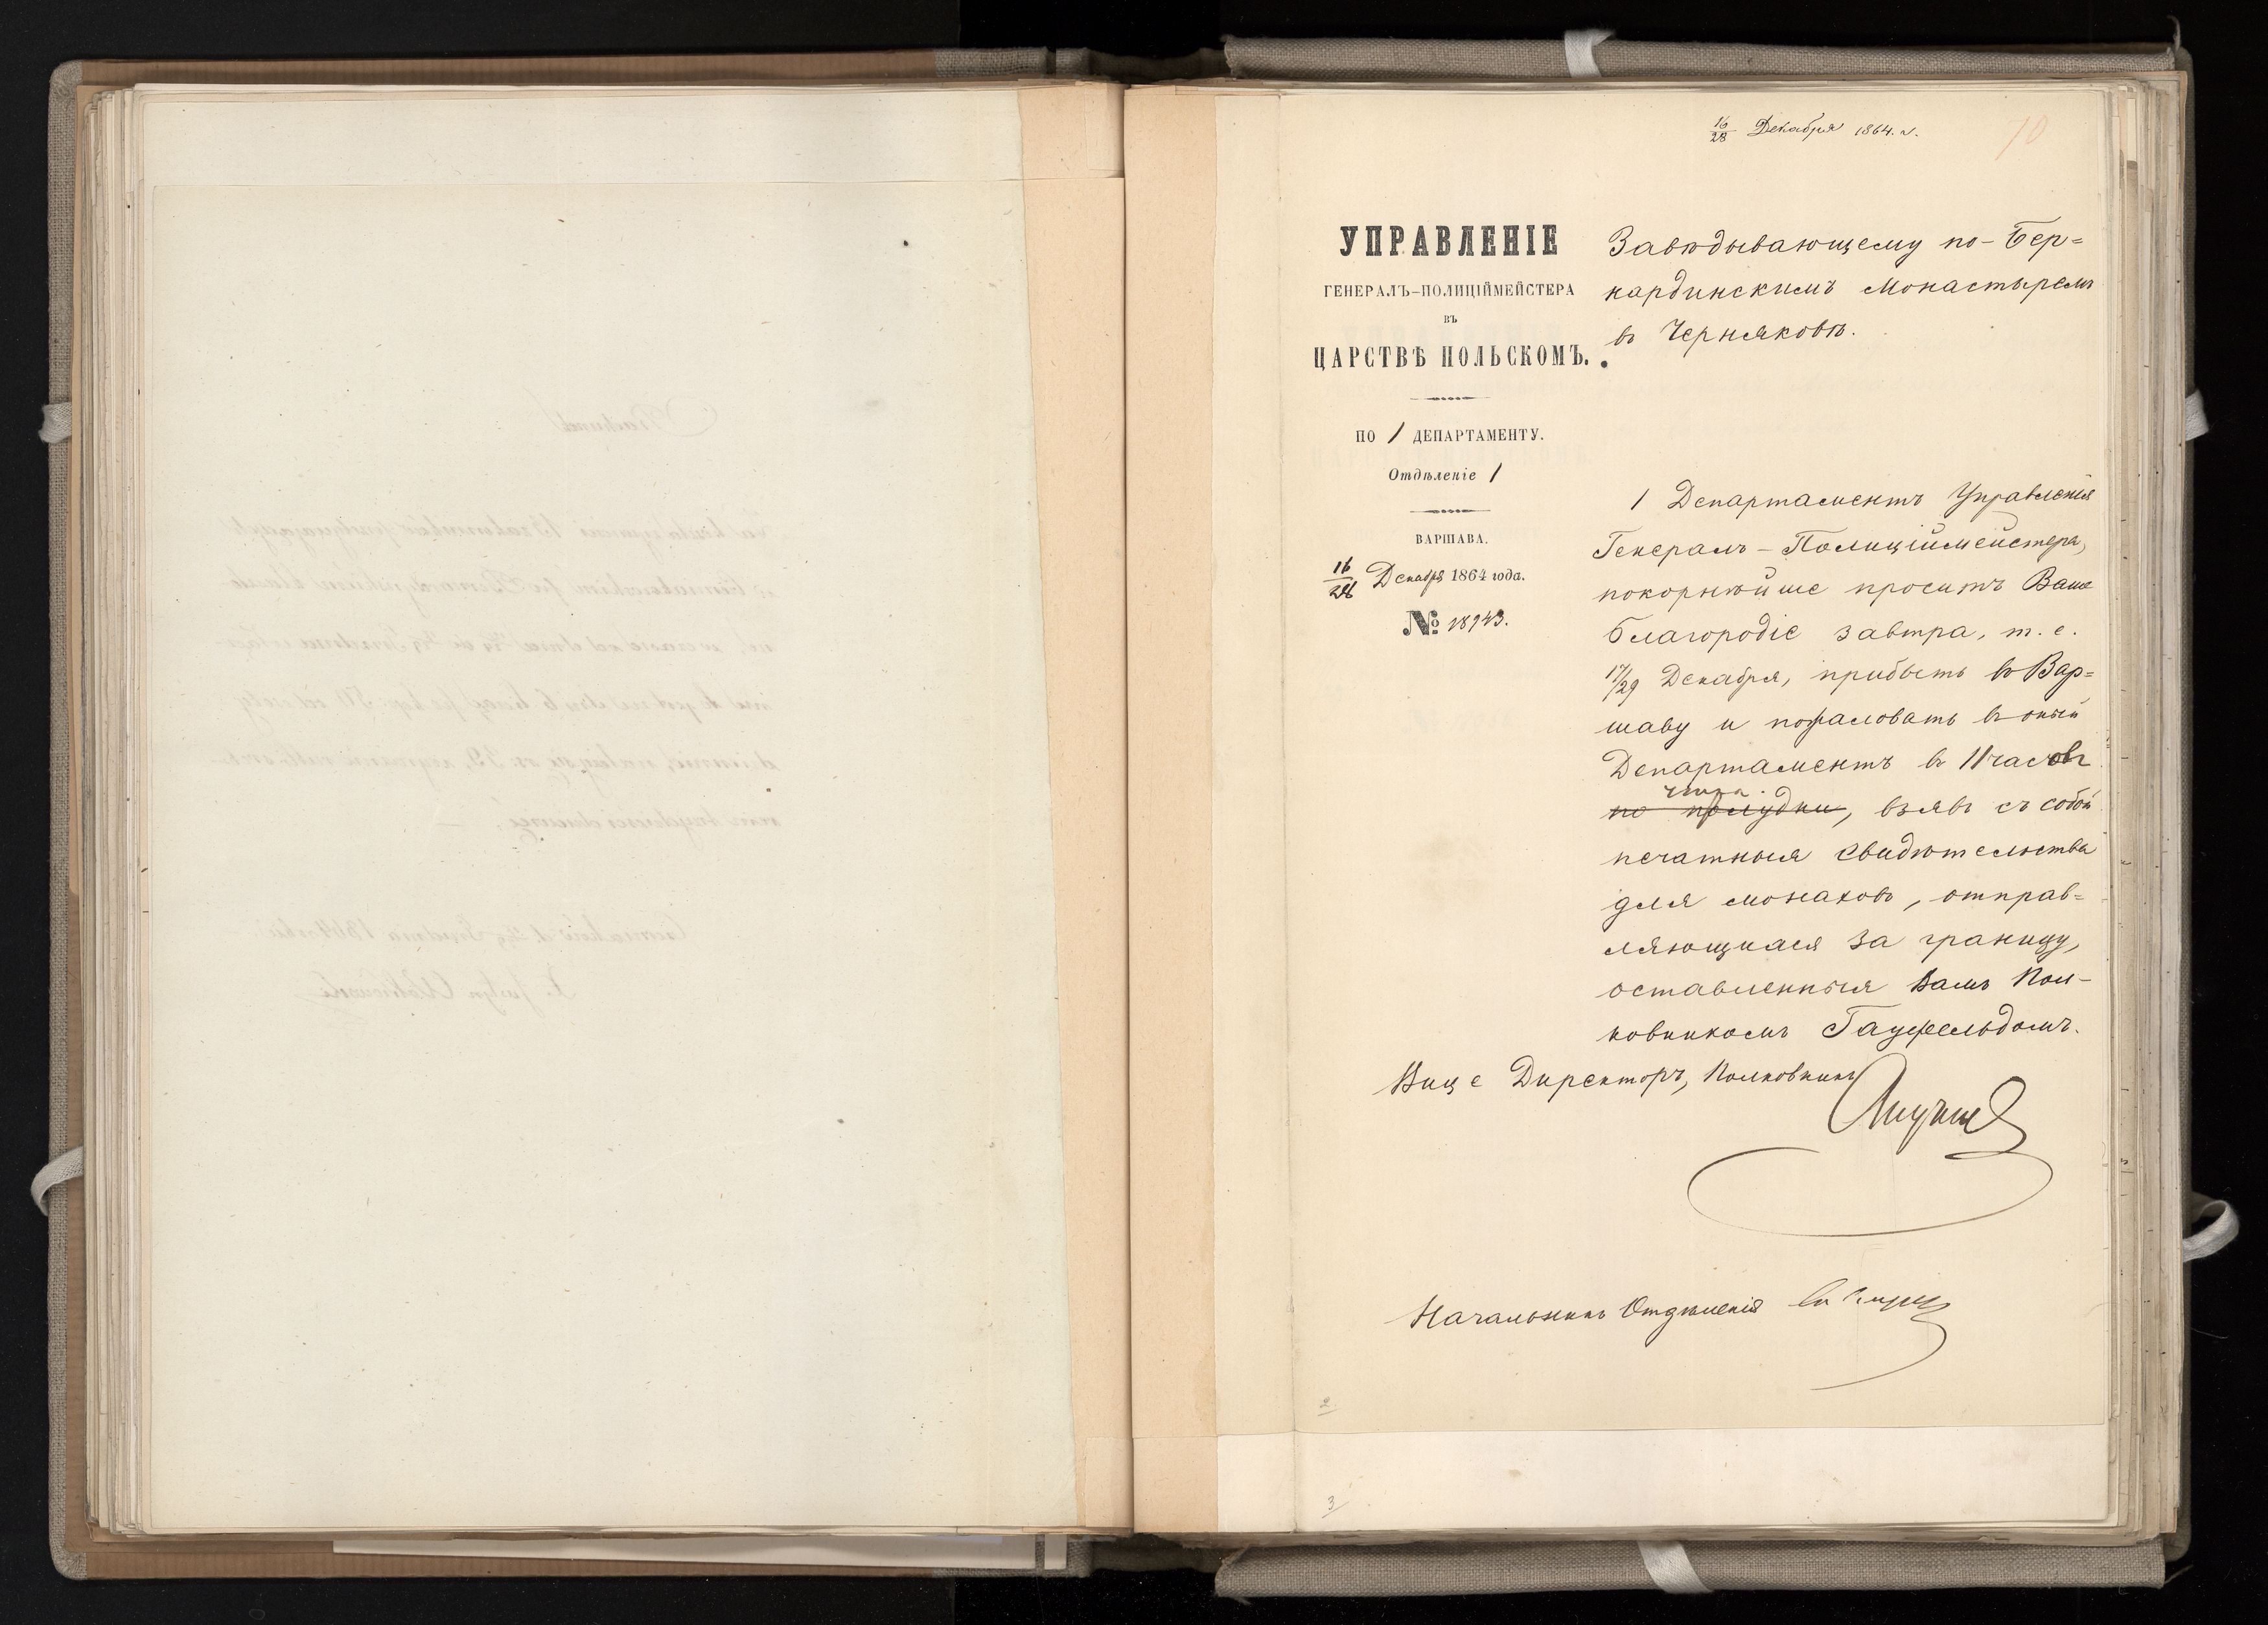 16/28 Декабря 1864. г.
70
УПРАВЛЕНІЕ
ГЕНЕРАЛЪ-ПОЛИЦІЙМЕЙСТЕРА
ВЪ
ЦАРСТВѢ ПОЛЬСКОМЪ.
ПО 1 ДЕПАРТАМЕНТУ.
Отдѣленіе 1
ВАРШАВА.
16/28 Декабря 1864 года.
№ 18943.
Завѣдывающему по-Бер=
нардинскимъ Монастыремъ
въ Черняковѣ.
1 Департаментъ Управленія
Генералъ-Полиціймейстера,
покорнѣйше проситъ Ваше
Благородіе завтра, т. е.
17/29 Декабря, прибыть въ Вар=
шаву и пожаловать въ оный
Департаментъ въ 11 часовъ
утра
по полудни, взявъ съ собой
печатныя свидѣтельства
для монаховъ, отправ=
ляющихся за границу,
оставленныя Вамъ Пол-
ковникомъ Гауфельдомъ.
Вице Директоръ, Полковникъ
Начальникъ Отдѣленія
2
3